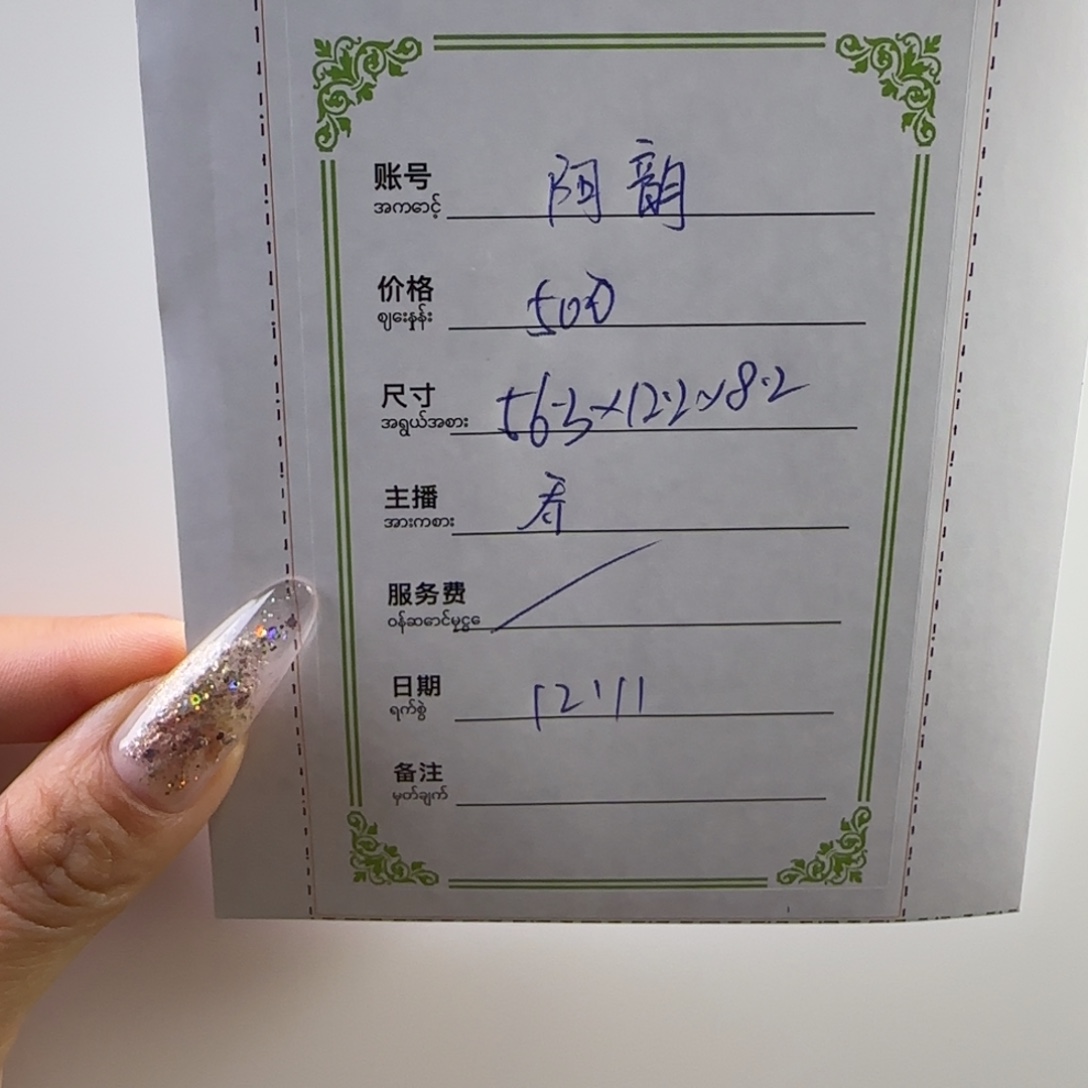 账号 阿韵
အကောင့်
价格 500
ဈေးနှုန်း
尺寸 56.3×12.2×8.2
အရွယ်အစား
主播 春
အားကစား
服务费
ဝန်ဆောင်မှုငွေ
日期 12.11
ရက်စွဲ
备注
မှတ်ချက်